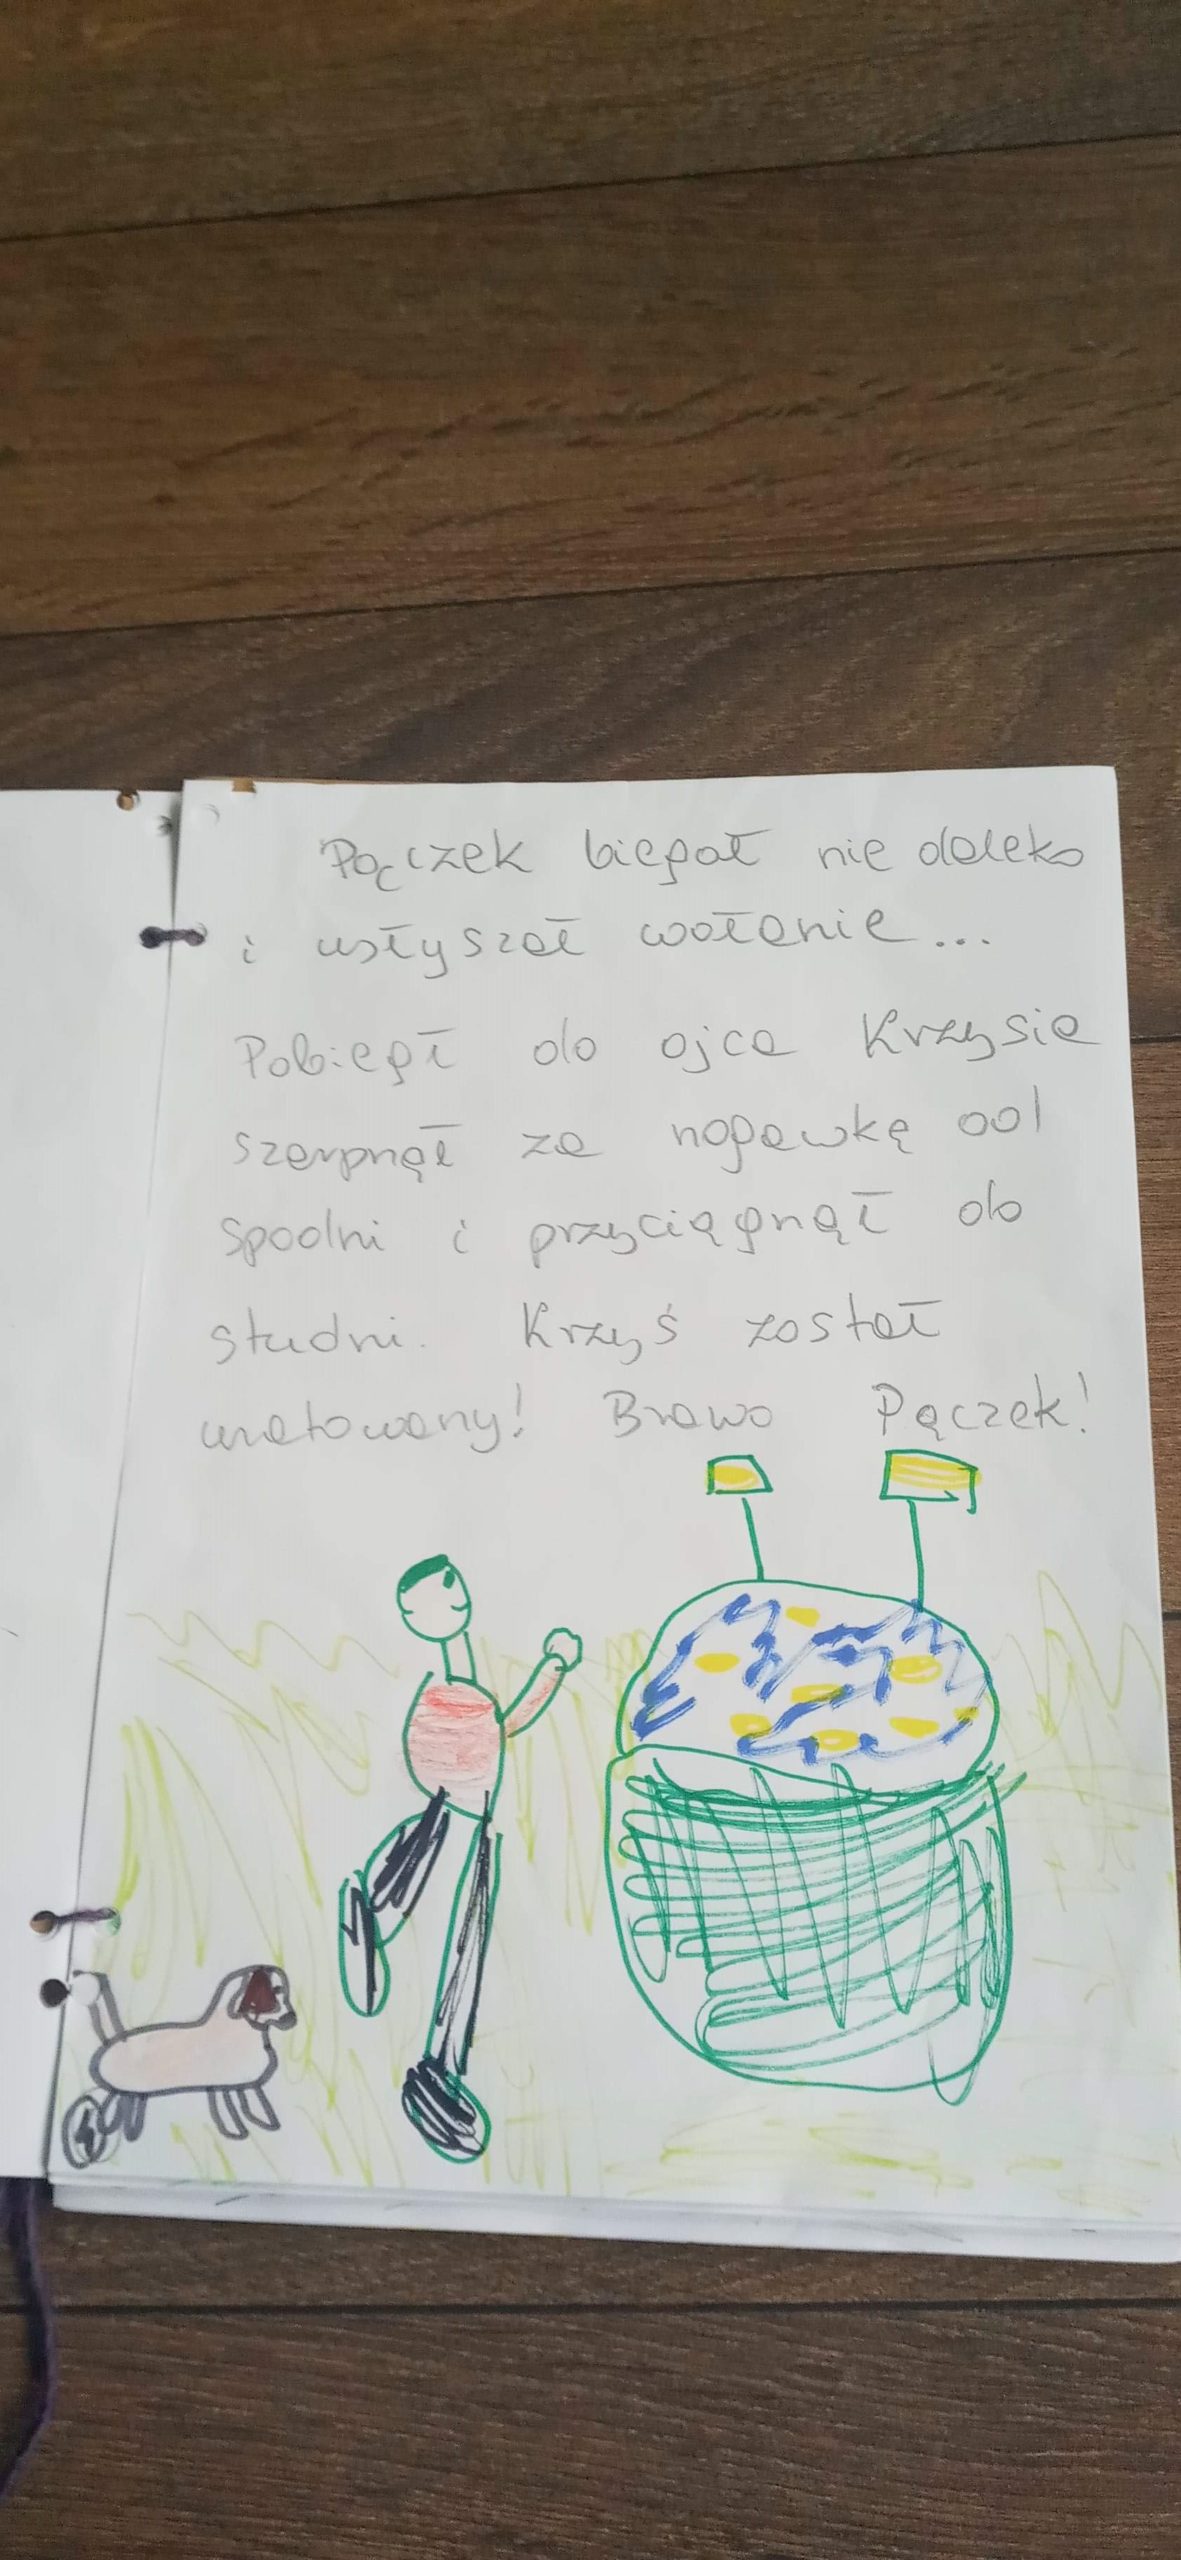 Pączek biegał nie daleko
i usłyszał wołanie...
Pobiegł do ojca Krzysia
szarpnął za nogawkę od
spodni i przyciągnął do
studni. Krzyś został
uratowany! Brawo Pączek!